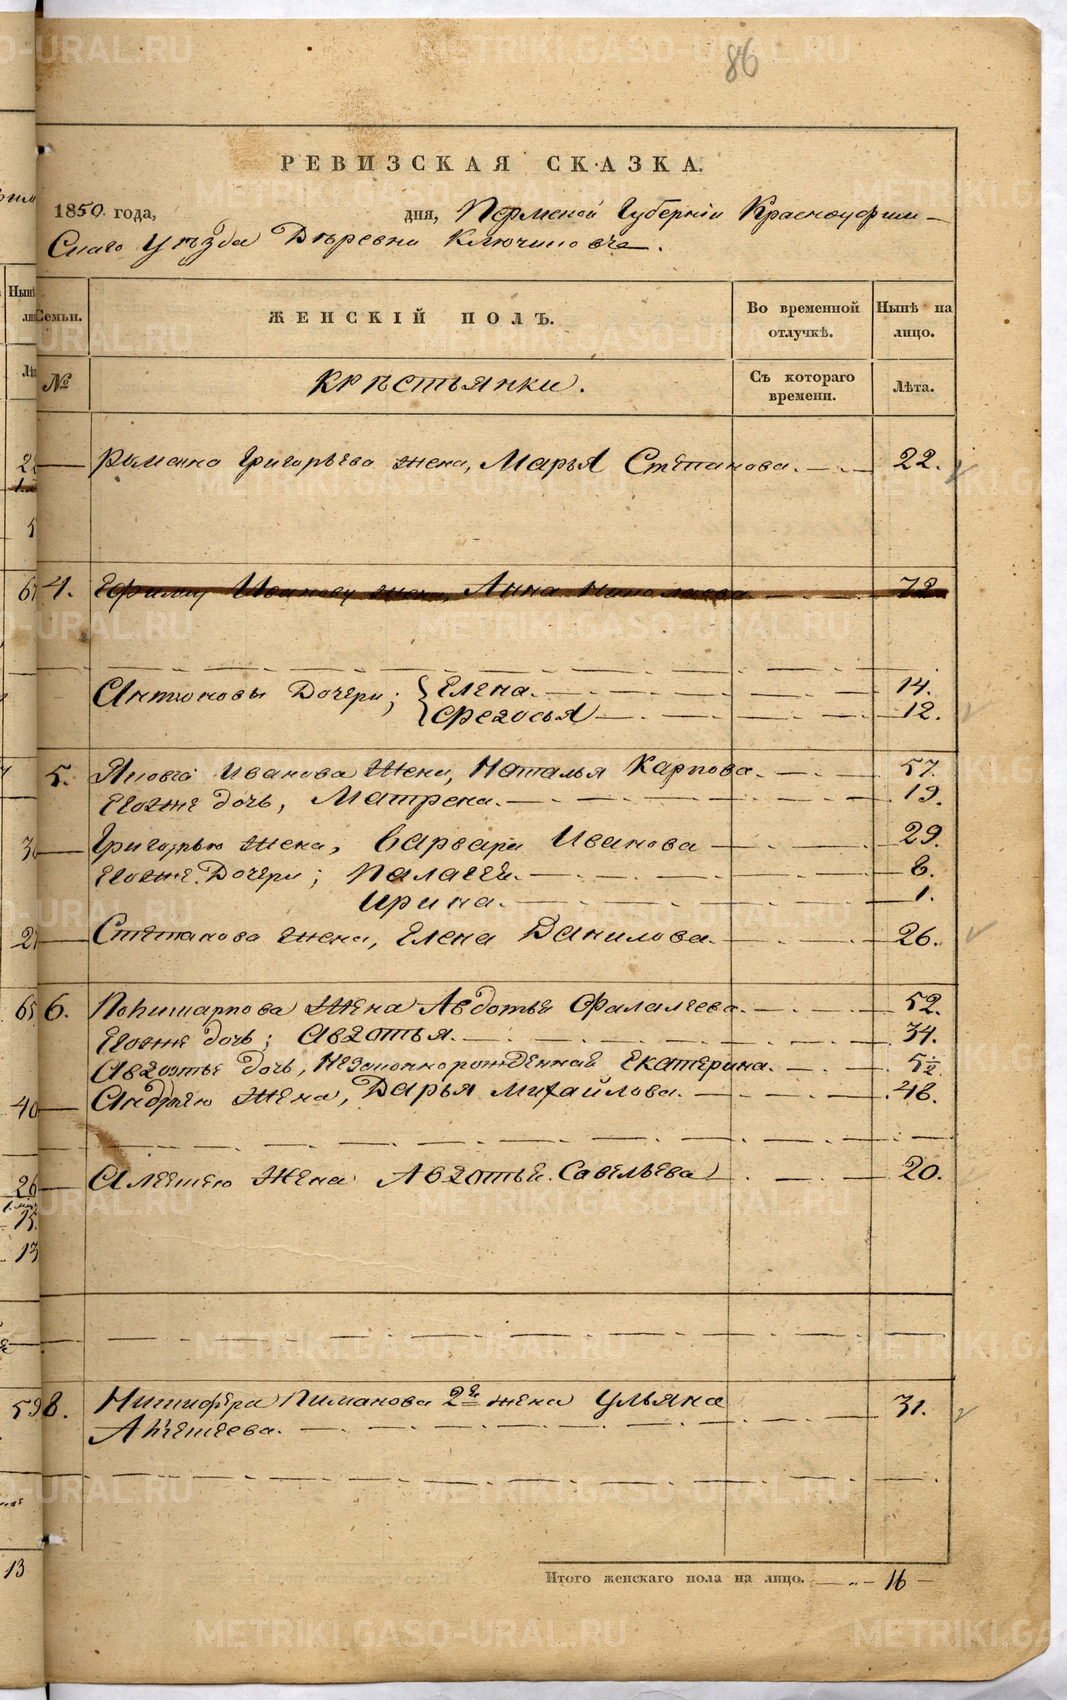 86
РЕВИЗСКАЯ СКАЗКА.
1850 года, дня, Пермской Губернiи Красноуфим-
скаго Уѣзда Деревни Ключиковъ.
Семьи. ЖЕНСКIЙ ПОЛЪ. Во временной отлучкѣ. Нынѣ на лицо.
№ Крѣстьянки. Съ котораго времени. Лѣта.
Григорьева жена, Марья Степанова. 22.
4. Ефима Иванова жена, Анна Николаева 72
Антоновы Дочери; Елена. 14.
Федосья 12.
5. Иванова Жена, Наталья Карпова. 57.
Еяже дочь, Матрена. 19.
Григорью жена, Варвара Иванова 29.
Еяже Дочери; Палагея. 6.
Ирина. 1.
Степанова жена, Елена Данилова. 26.
6. Жена Авдотья Фалалеева. 52.
Еяже дочь; Авдотья. 34.
Авдотье дочь, Незаконнорожденная Екатерина. 5 ½
Андрѣю Жена, Дарья Михайлова. 48.
Алексѣю Жена Авдотья Савельева 20.
8. Никифера Пиманова 2я жена Ульяна 31.
Алексеева.
Итого женскаго пола на лицо. 16
METRIKI.GASO-URAL.RU